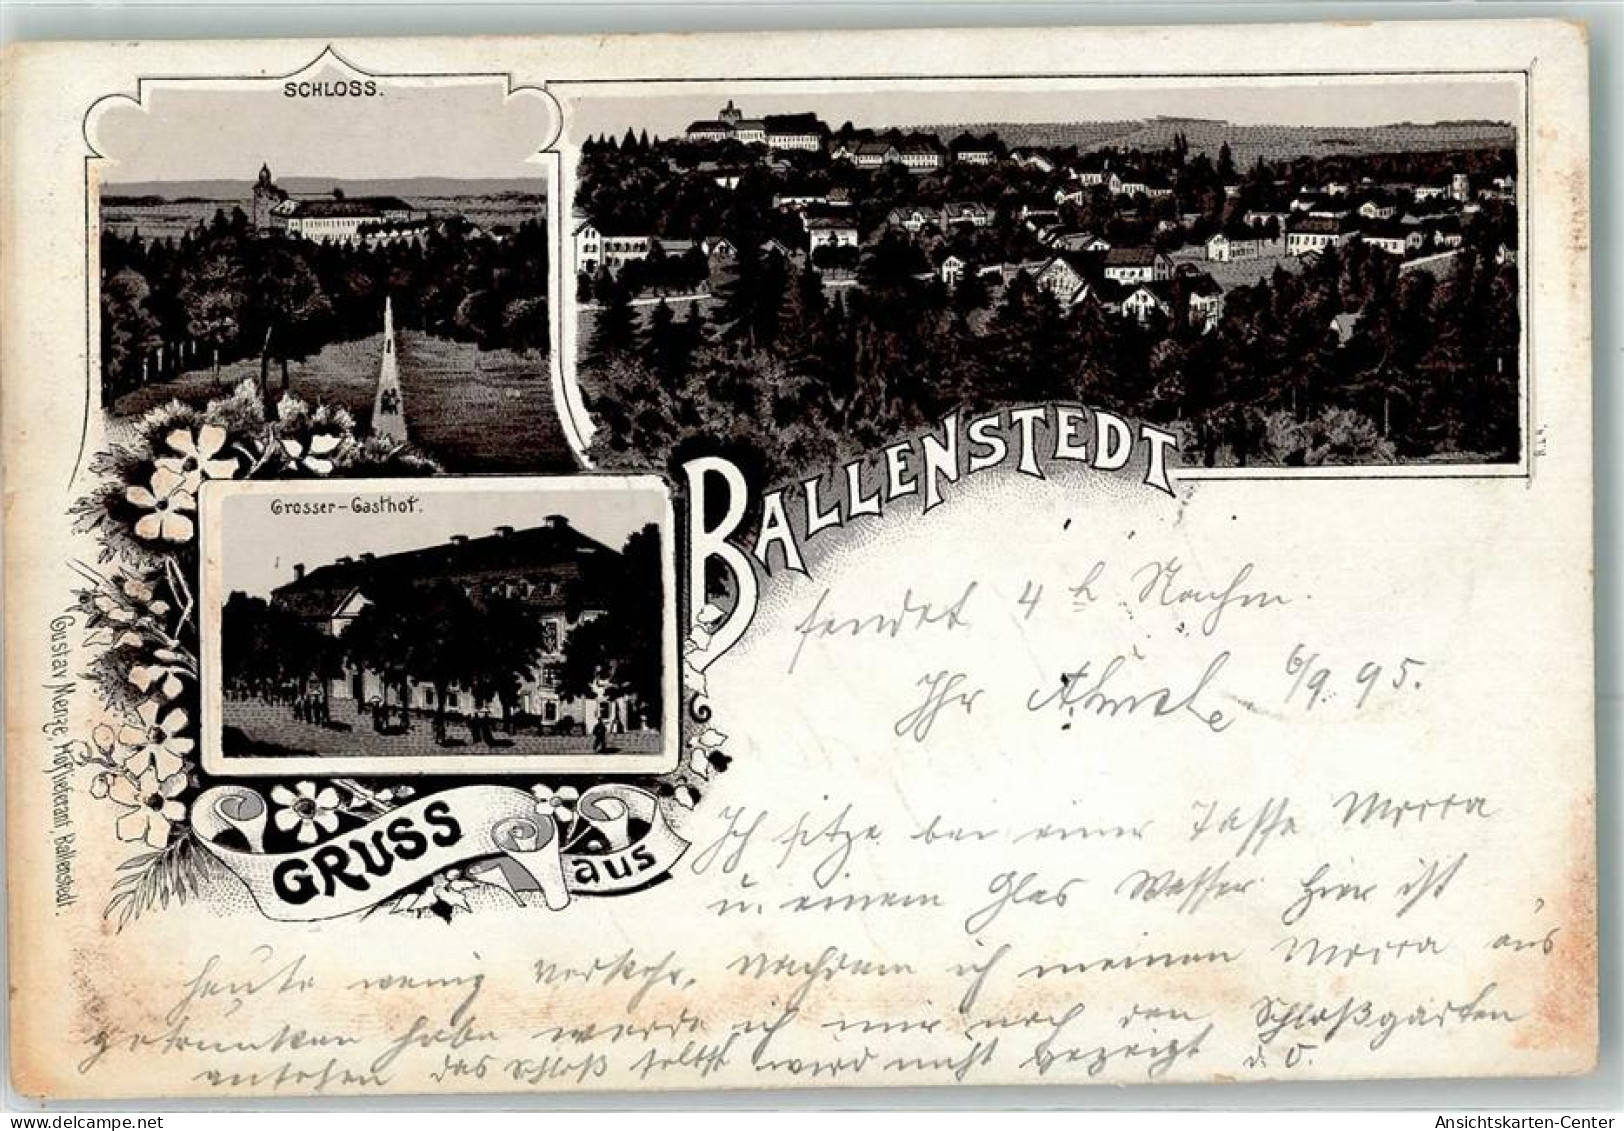 SCHLOSS.
Grosser-Gasthof.
GRUSS
aus
BALLENSTEDT
Gustav Menze, Hoflieferant, Ballenstedt.
sendet 4 h Nachm.
Ihr 6/9 95.
Ich sitze bei einer Tasse Mocca
u. einem Glas Wasser. Hier ist
heute wenig Verkehr. Nachdem ich meinen Mocca aus
getrunken habe werde ich mir noch den Schloßgarten
ansehen das Schloß selbst wird nicht gezeigt d. O.
Ansichtskarten-Center